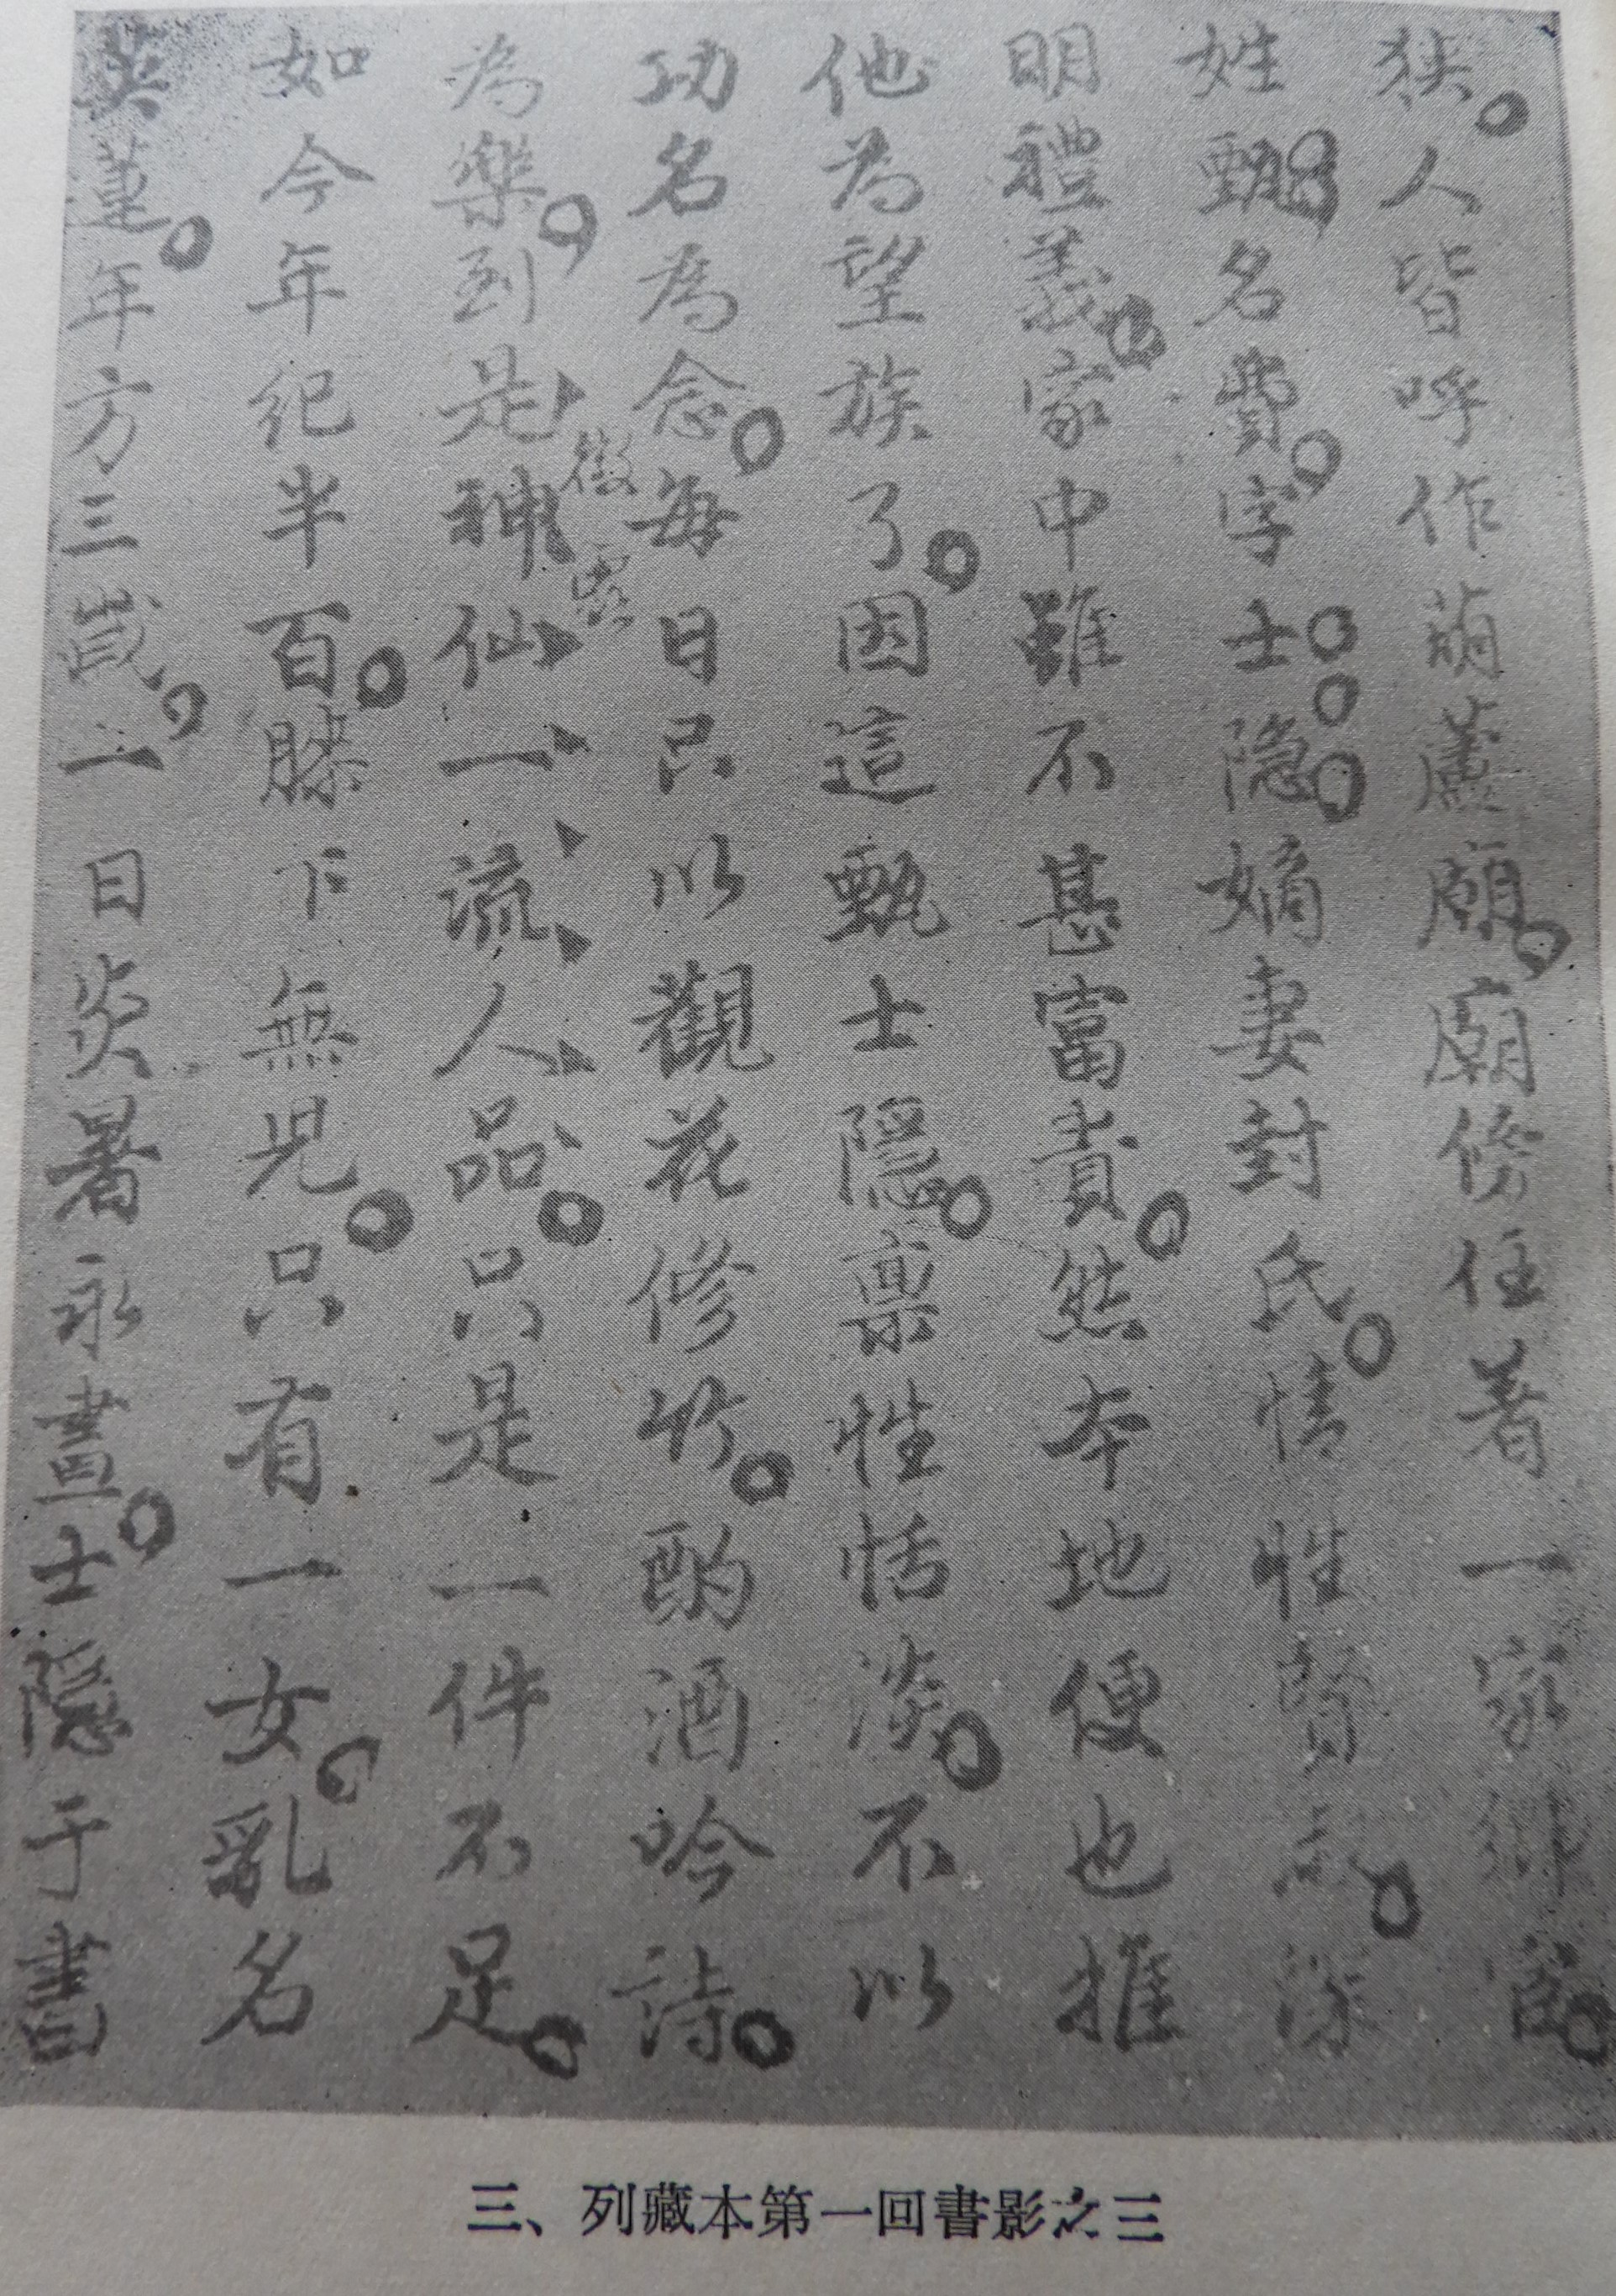 狹。人皆呼作葫蘆廟。廟傍住着一家鄉宦。
姓甄。名費。字士隱。嫡妻封氏。情性賢淑。深
明禮義。家中雖不甚富貴。然本地便也推
他為望族了。因這甄士隱。禀性恬淡。不以
功名為念。每日只以觀花修竹。酌酒吟詩。
為樂。到是神仙一流人品。只是一件不足。
如今年紀半百。膝下無兒。只有一女。乳名
英蓮。年方三歲。一日炎暑永晝。士隱于書
三、列藏本第一回書影之三